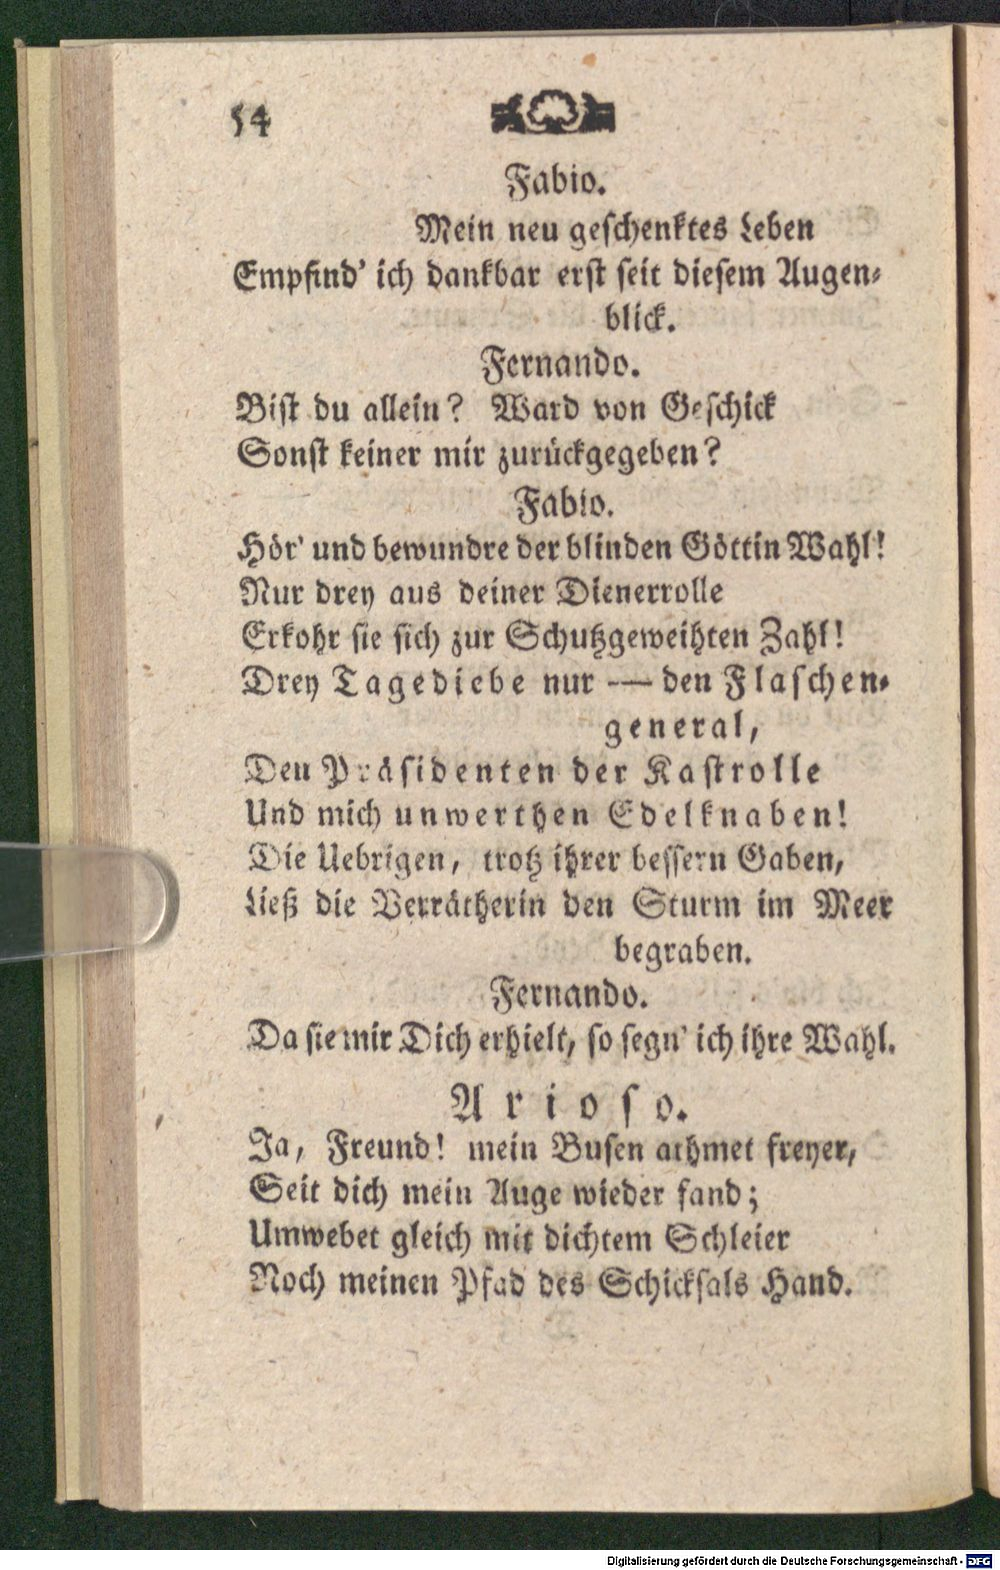 54
Fabio.
Mein neu geschenktes Leben
Empfind' ich dankbar erst seit diesem Augen-
blick.
Fernando.
Bist du allein? Ward von Geschick
Sonst keiner mir zurückgegeben?
Fabio.
Hör' und bewundre der blinden Göttin Wahl!
Nur drey aus deiner Dienerrolle
Erkohr sie sich zur Schutzgeweihten Zahl!
Drey Tagediebe nur — den Flaschen-
general,
Den Präsidenten der Kastrolle
Und mich unwerthen Edelknaben!
Die Uebrigen, trotz ihrer bessern Gaben,
Ließ die Verrätherin den Sturm im Meer
begraben.
Fernando.
Da sie mir Dich erhielt, so segn' ich ihre Wahl.
Arioso.
Ja, Freund! mein Busen athmet freyer,
Seit dich mein Auge wieder fand;
Umwebet gleich mit dichtem Schleier
Noch meinen Pfad des Schicksals Hand.
Digitalisierung gefördert durch die Deutsche Forschungsgemeinschaft - DFG